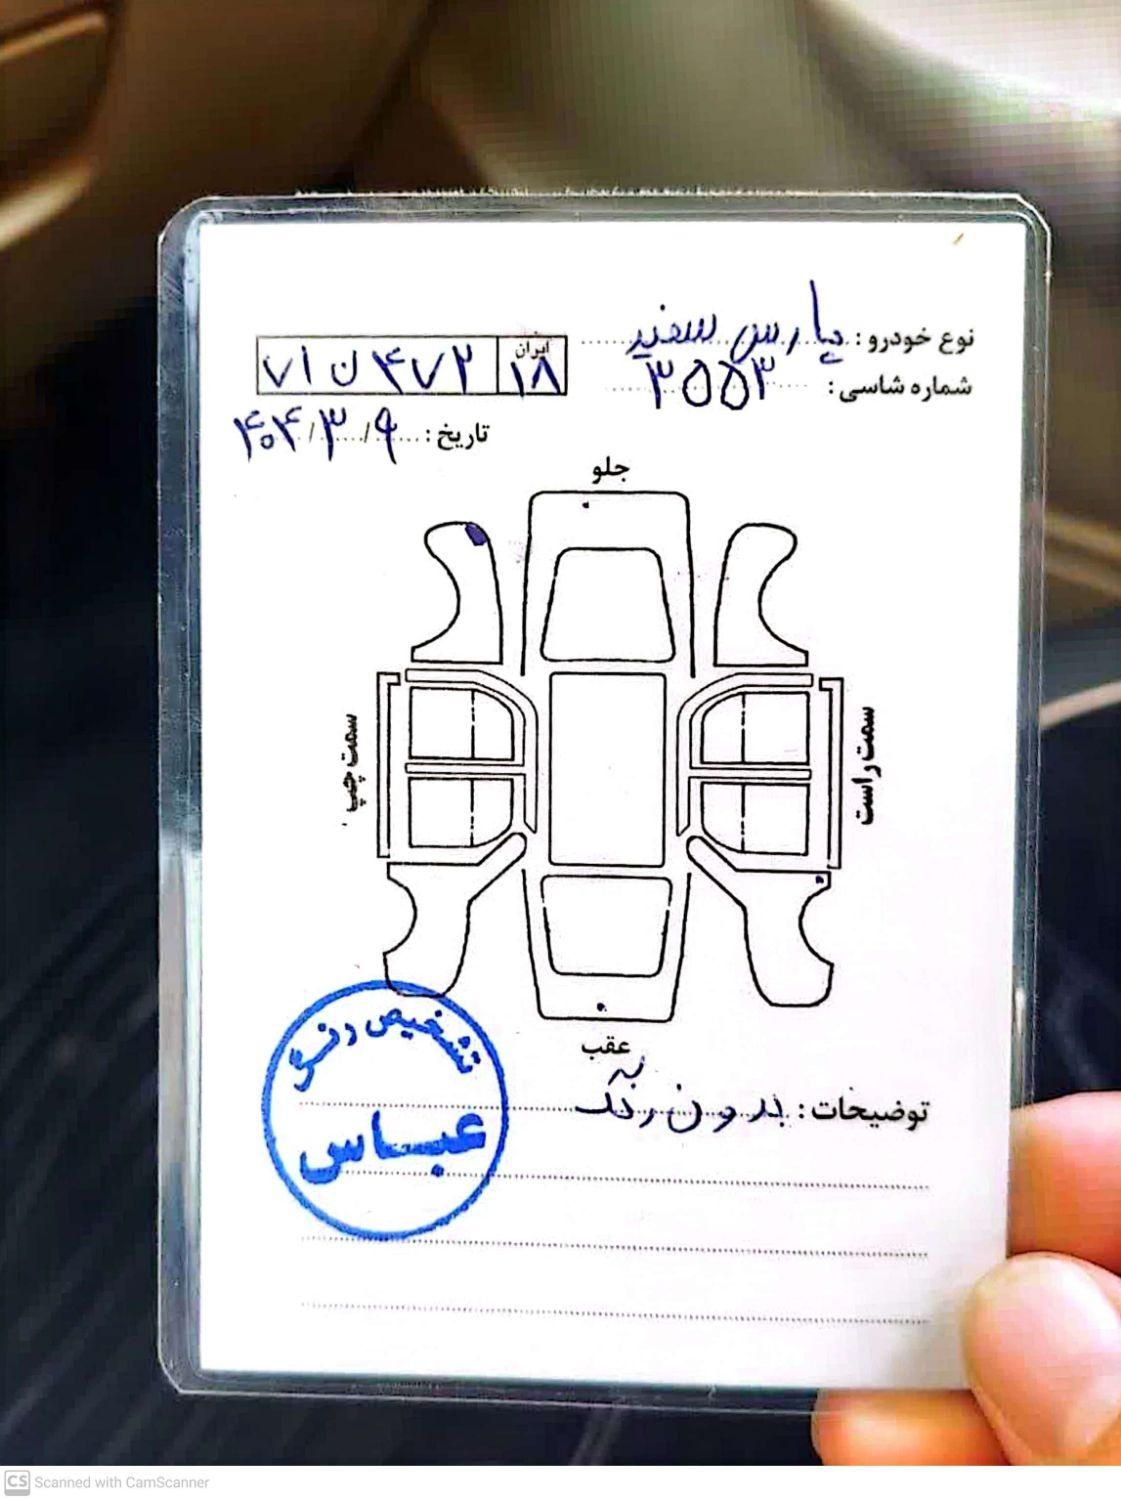 نوع خودرو : پارس سفید
شماره شاسی : ۳۵۵۳
ایران
۷۱ ن ۴۷۲ ۱۸
تاریخ : ۹ / ۳ / ۴۰۴
جلو
سمت چپ
سمت راست
عقب
توضیحات : بدون رنگ
تشخیص رنگ
عباس
CS Scanned with CamScanner